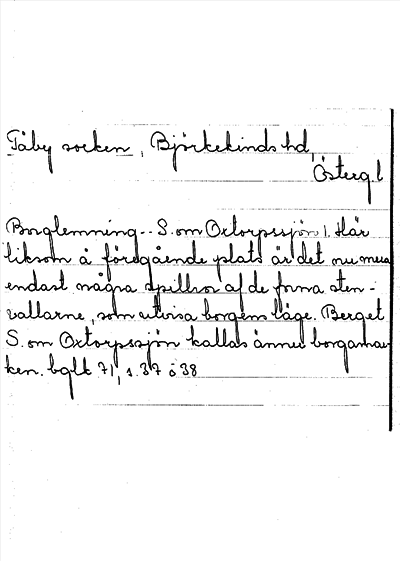 Tåby socken, Björkekinds hd,
Österg.l
Borglemning -- S. om Oxtorpssjön). Här
liksom å föregående plats är det numera
endast några spillror af de forna sten-
vallarne, som utvisa borgens läge. Berget
S. om Oxtorpssjön kallas ännu borgamar
ken. bglt 71, s. 37 o 38